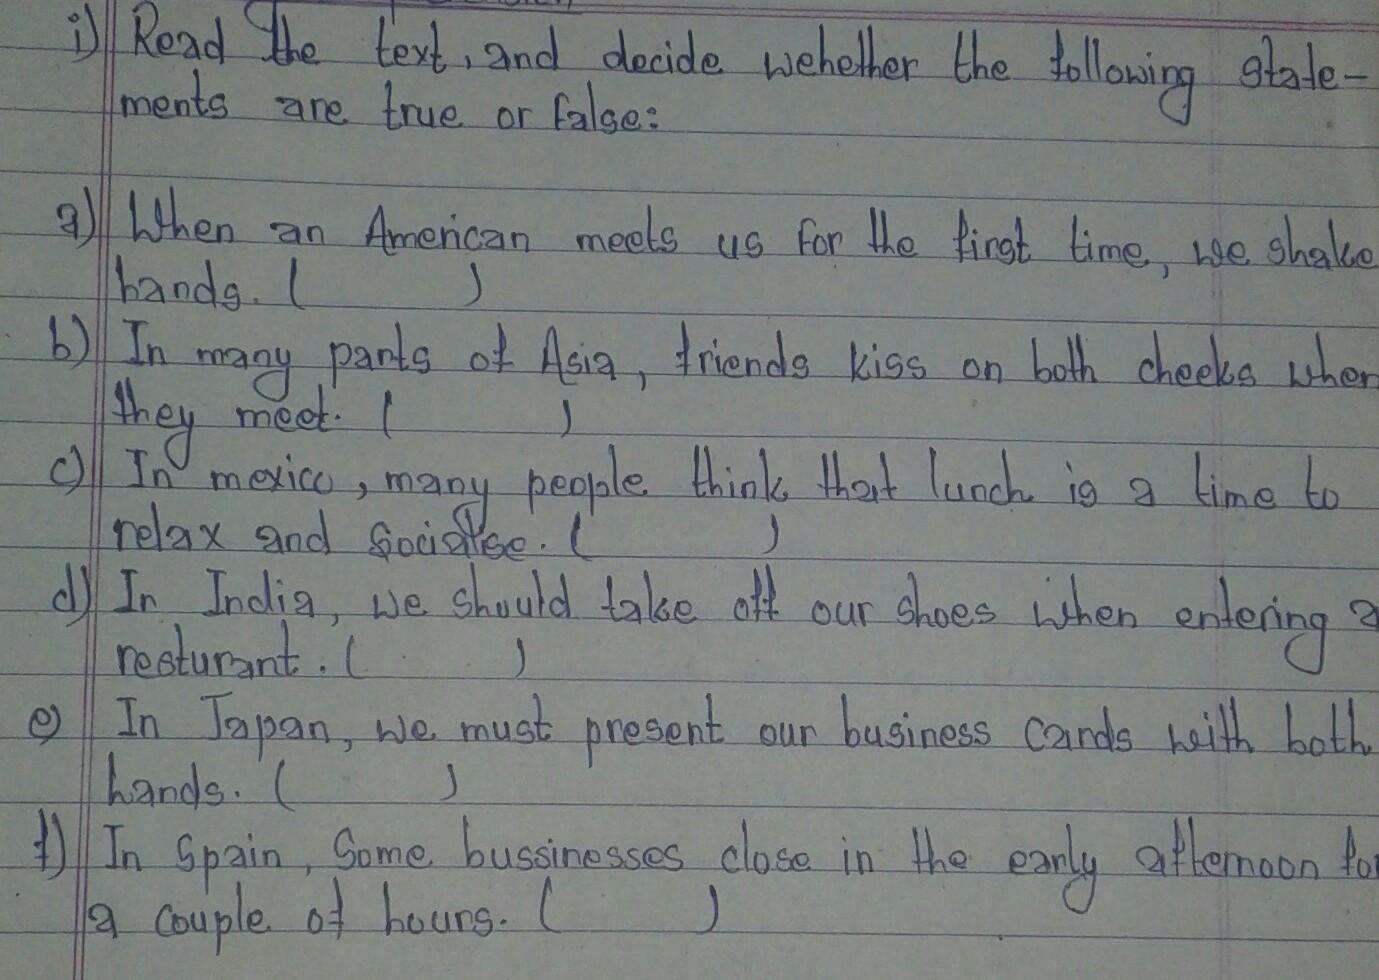 i) Read the text, and decide wehether the following state-
ments are true or false:
a) When an American meets us for the first time, we shake
hands. ( )
b) In many parts of Asia, friends kiss on both cheeks when
they meet. ( )
c) In mexico, many people think that lunch is a time to
relax and socialise. ( )
d) In India, we should take off our shoes when entering a
resturant. ( )
e) In Japan, we must present our business cards with both
hands. ( )
f) In Spain, Some bussinesses close in the early afternoon for
a couple of hours. ( )